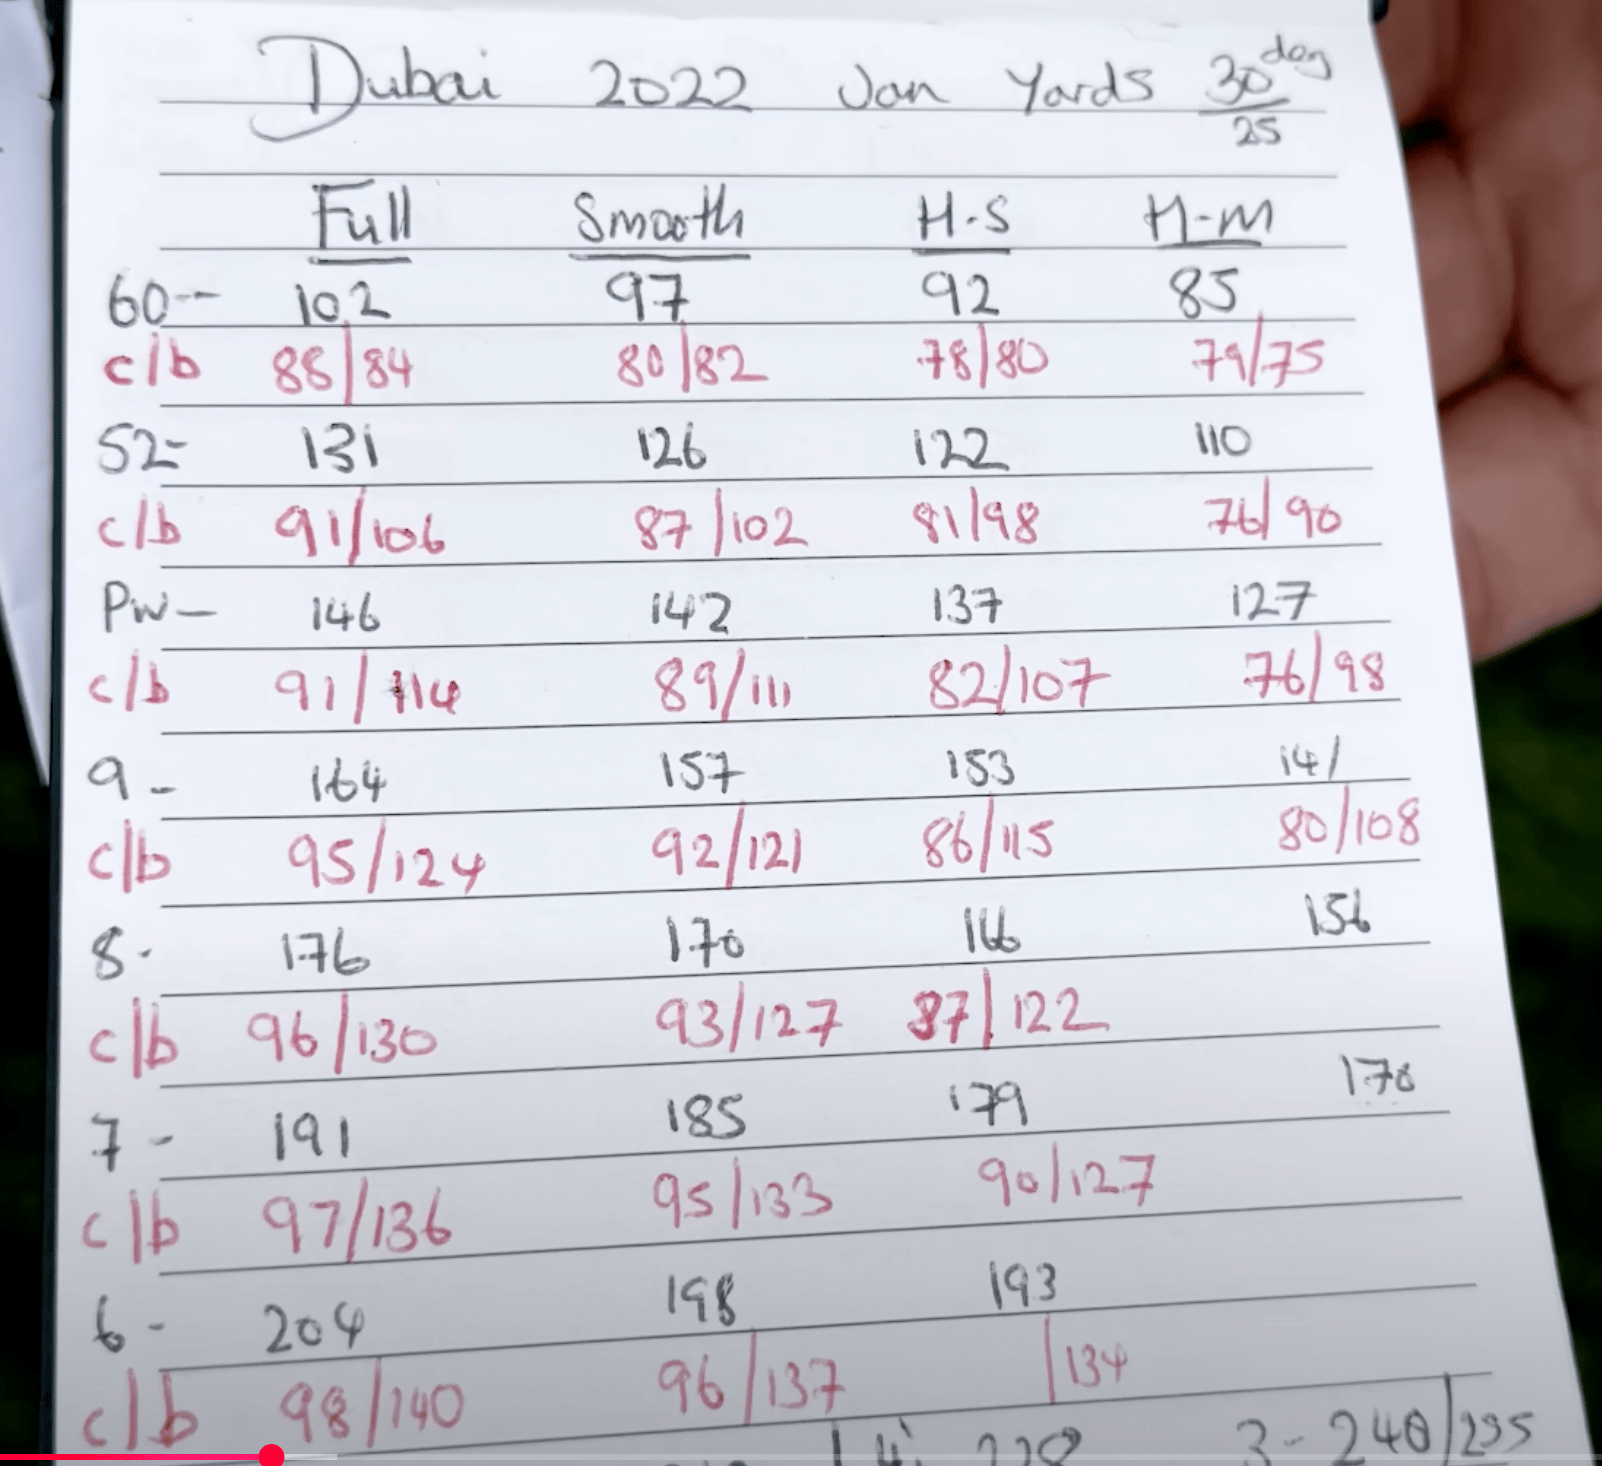 Dubai 2022 Jan Yards 30 deg
25
Full Smooth H-S H-M
60-- 102 97 92 85
c/b 88/84 80/82 78/80 79/75
52- 131 126 122 110
c/b 91/106 87/102 81/98 76/90
PW- 146 142 137 127
c/b 91/114 89/111 82/107 76/98
9- 164 157 153 141
c/b 95/124 92/121 86/115 80/108
8- 176 170 166 156
c/b 96/130 93/127 87/122
7- 191 185 179 170
c/b 97/136 95/133 90/127
6- 204 198 193
c/b 98/140 96/137 /134
3- 240/235